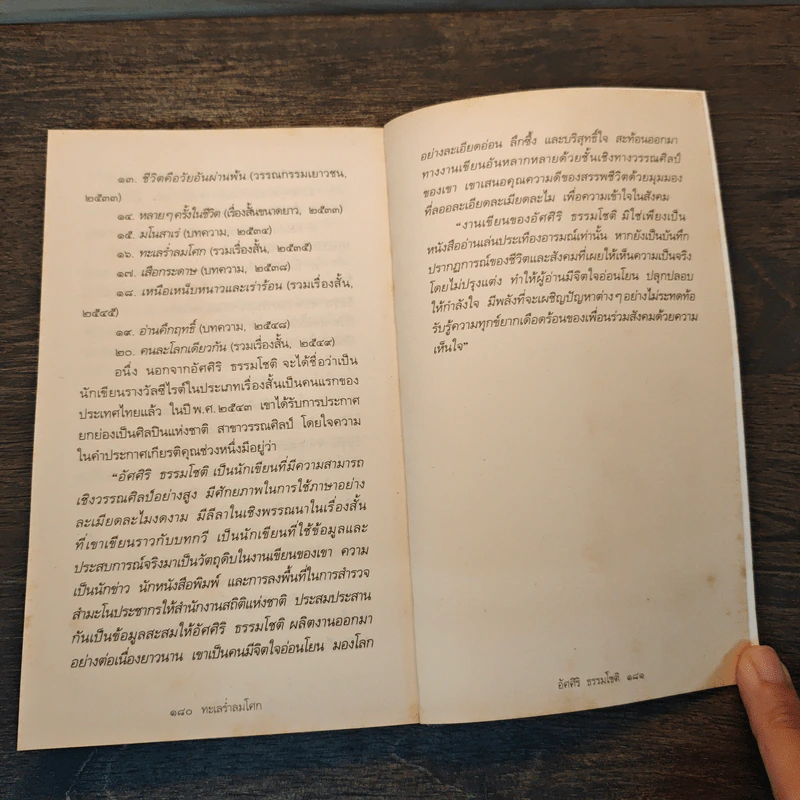 ๑๓. ชีวิตคือวัยอันผ่านพ้น (วรรณกรรมเยาวชน,
๒๕๓๓)
๑๔. หลายๆครั้งในชีวิต (เรื่องสั้นขนาดยาว, ๒๕๓๓)
๑๕. มโนสาเร่ (บทความ, ๒๕๓๔)
๑๖. ทะเลร่ำลมโศก (รวมเรื่องสั้น, ๒๕๓๕)
๑๗. เสือกระดาษ (บทความ, ๒๕๓๘)
๑๘. เหนือเหน็บหนาวและเร่าร้อน (รวมเรื่องสั้น,
๒๕๔๕)
๑๙. อ่านคึกฤทธิ์ (บทความ, ๒๕๔๘)
๒๐. คนละโลกเดียวกัน (รวมเรื่องสั้น, ๒๕๔๙)
อนึ่ง นอกจากอัศศิริ ธรรมโชติ จะได้ชื่อว่าเป็น
นักเขียนรางวัลซีไรต์ในประเภทเรื่องสั้นเป็นคนแรกของ
ประเทศไทยแล้ว ในปี พ.ศ. ๒๕๔๓ เขาได้รับการประกาศ
ยกย่องเป็นศิลปินแห่งชาติ สาขาวรรณศิลป์ โดยใจความ
ในคำประกาศเกียรติคุณช่วงหนึ่งมีอยู่ว่า
“อัศศิริ ธรรมโชติ เป็นนักเขียนที่มีความสามารถ
เชิงวรรณศิลป์อย่างสูง มีศักยภาพในการใช้ภาษาอย่าง
ละเมียดละไมงดงาม มีลีลาในเชิงพรรณนาในเรื่องสั้น
ที่เขาเขียนราวกับบทกวี เป็นนักเขียนที่ใช้ข้อมูลและ
ประสบการณ์จริงมาเป็นวัตถุดิบในงานเขียนของเขา ความ
เป็นนักข่าว นักหนังสือพิมพ์ และการลงพื้นที่ในการสำรวจ
สำมะโนประชากรให้สำนักงานสถิติแห่งชาติ ประสมประสาน
กันเป็นข้อมูลสะสมให้อัศศิริ ธรรมโชติ ผลิตงานออกมา
อย่างต่อเนื่องยาวนาน เขาเป็นคนมีจิตใจอ่อนโยน มองโลก
๑๘๐ ทะเลร่ำลมโศก
อย่างละเอียดอ่อน ลึกซึ้ง และบริสุทธิ์ใจ สะท้อนออกมา
ทางงานเขียนอันหลากหลายด้วยชั้นเชิงทางวรรณศิลป์
ของเขา เขาเสนอคุณความดีของสรรพชีวิตด้วยมุมมอง
ที่ลออละเอียดละเมียดละไม เพื่อความเข้าใจในสังคม
“งานเขียนของอัศศิริ ธรรมโชติ มิใช่เพียงเป็น
หนังสืออ่านเล่นประเทืองอารมณ์เท่านั้น หากยังเป็นบันทึก
ปรากฏการณ์ของชีวิตและสังคมที่เผยให้เห็นความเป็นจริง
โดยไม่ปรุงแต่ง ทำให้ผู้อ่านมีจิตใจอ่อนโยน ปลุกปลอบ
ให้กำลังใจ มีพลังที่จะเผชิญปัญหาต่างๆอย่างไม่ระทดท้อ
รับรู้ความทุกข์ยากเดือดร้อนของเพื่อนร่วมสังคมด้วยความ
เห็นใจ”
อัศศิริ ธรรมโชติ ๑๘๑